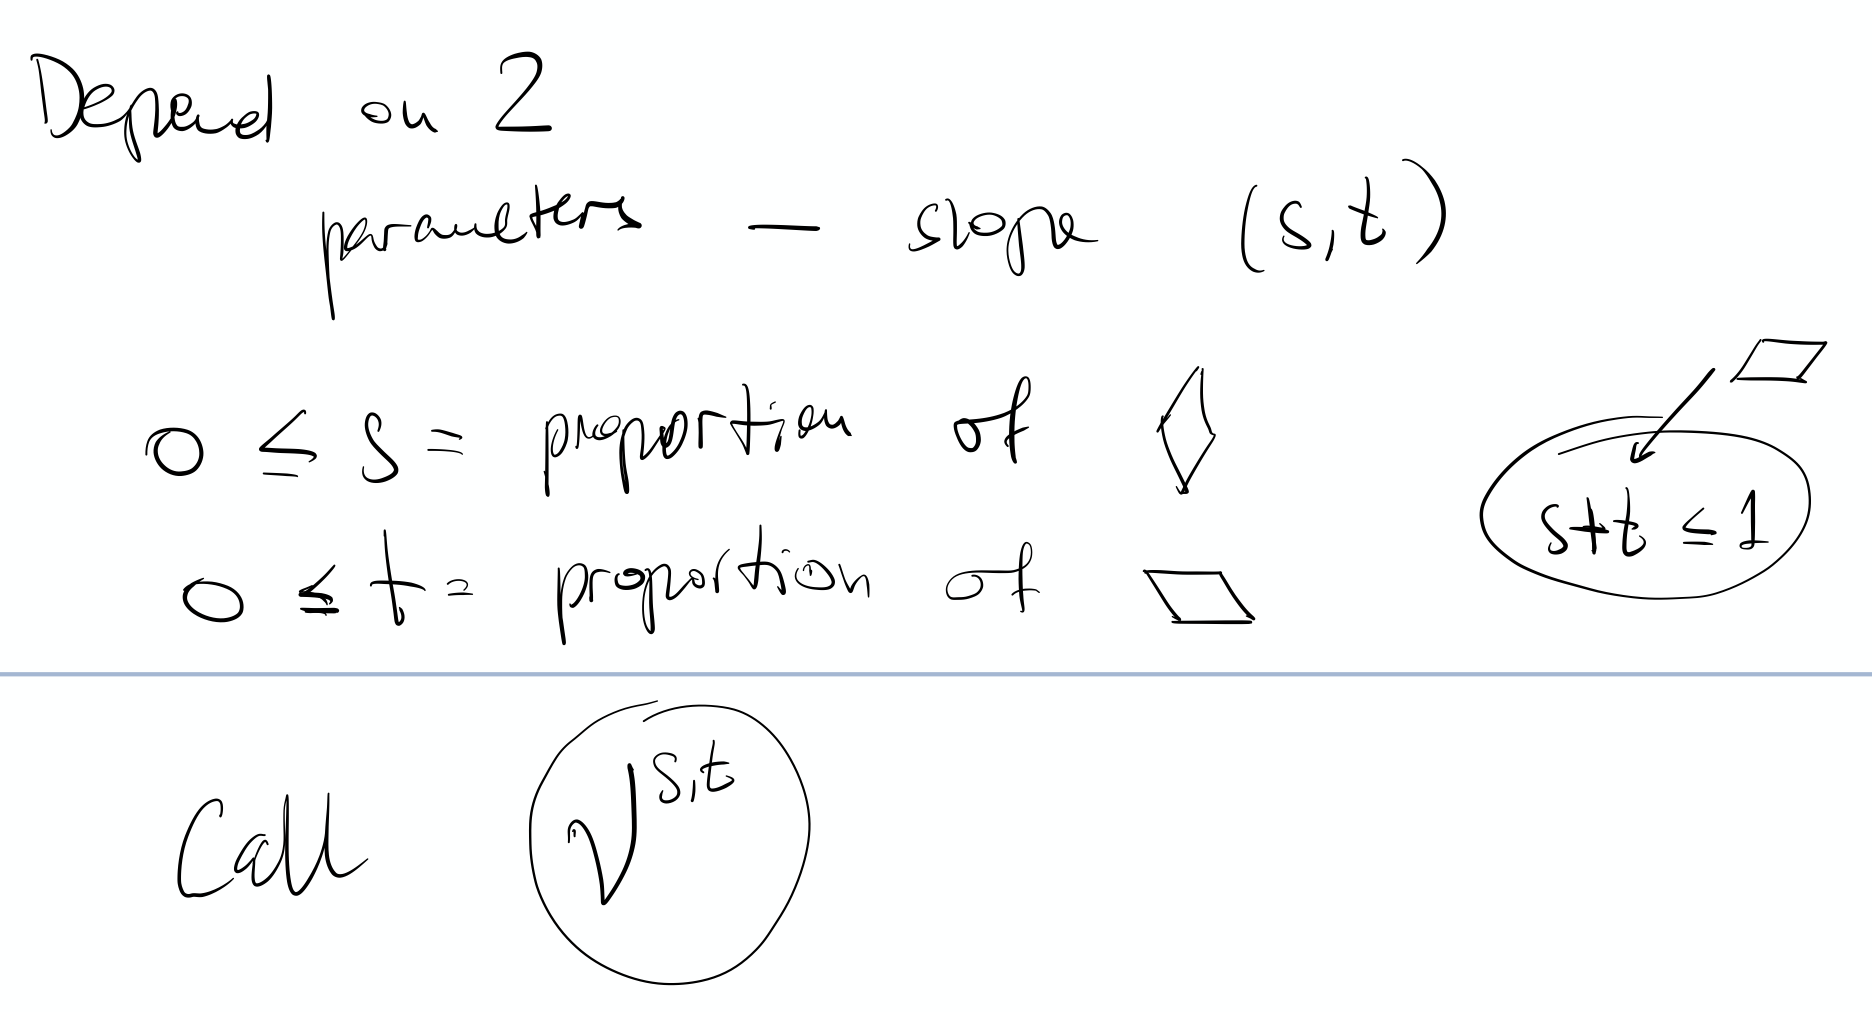 Depend on 2
parameters — slope (s,t)
0 ≤ s = proportion of
s+t ≤ 1
0 ≤ t = proportion of
Call ν^{s,t}